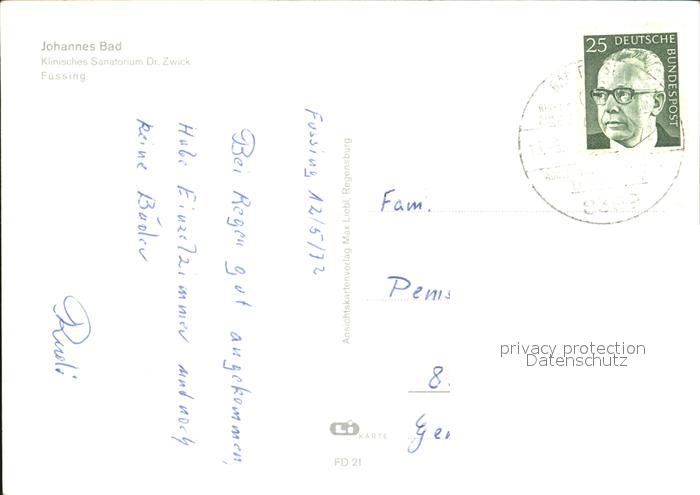 Johannes Bad
Klinisches Sanatorium Dr. Zwick
Füssing
25 DEUTSCHE
BUNDESPOST
Füssing 12/5/72
Bei Regen gut angekommen,
Habe Einzelzimmer und noch
keine Bäder
Rudi
Ansichtskartenverlag Max Liebl, Regensburg
Fam.
Pens
8.
privacy protection
Datenschutz
Li KARTE
FD 21